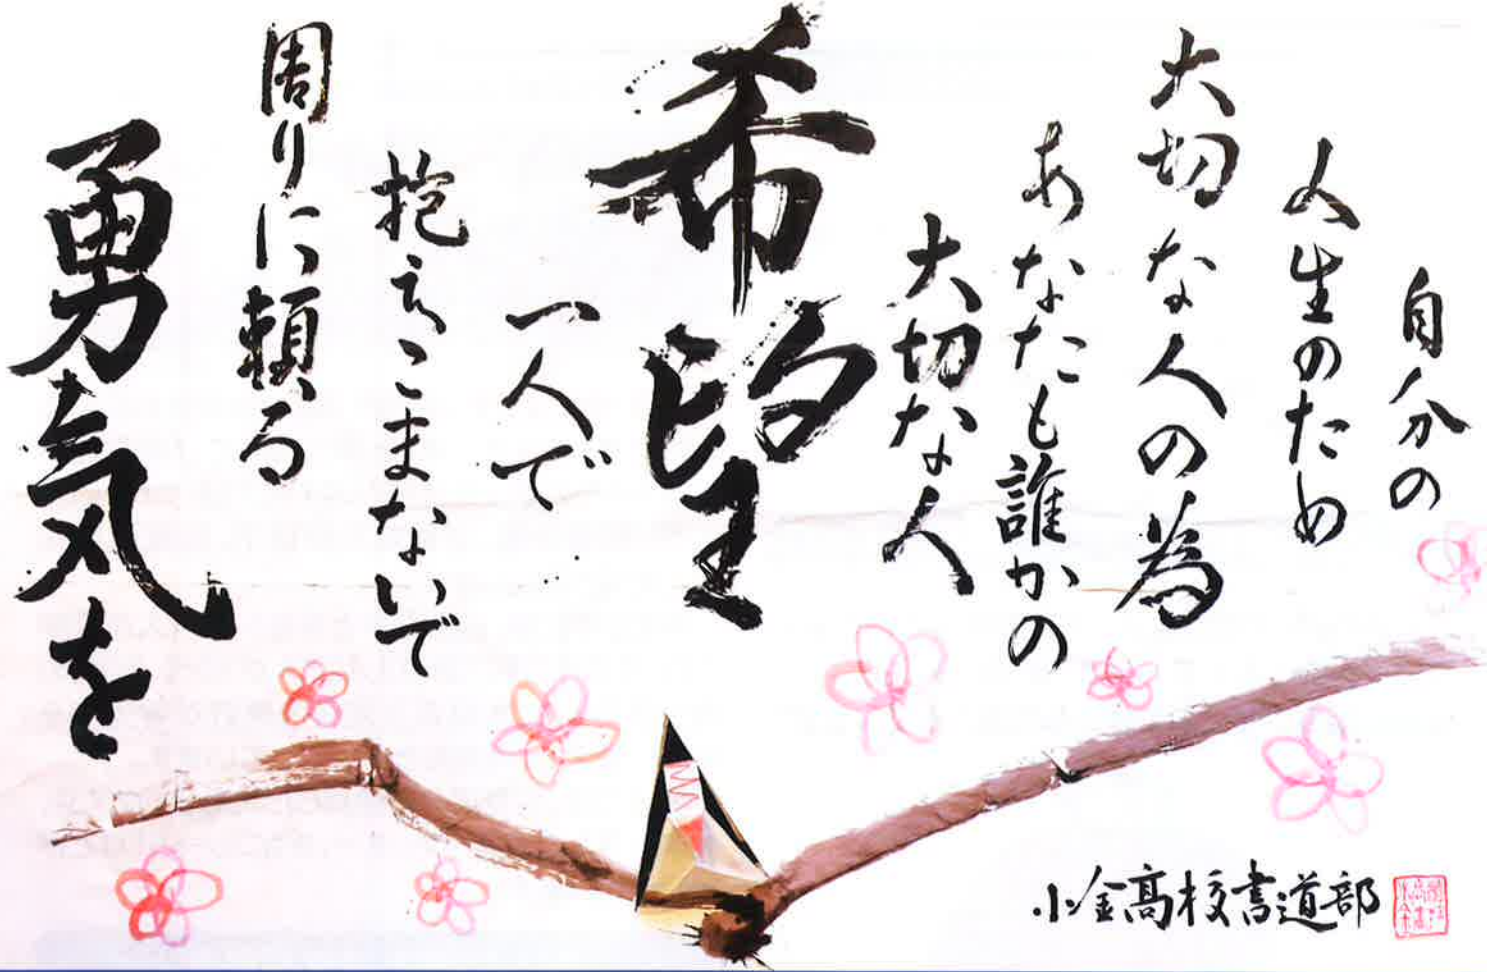 自分の
人生のため
大切な人の為
あなたも誰かの
大切な人
希望
一人で
抱えこまないで
周りに頼る
勇気を
小金高校書道部